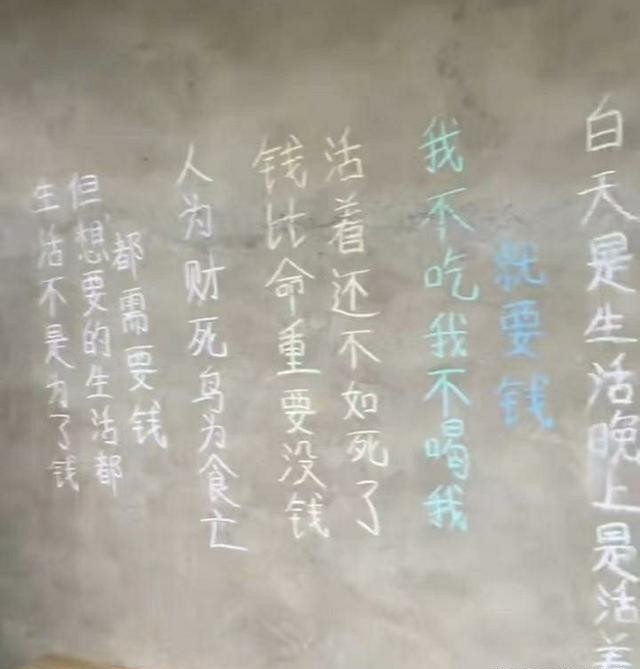 生活不是为了钱
但想要的生活都
都需要钱
人为财死鸟为食亡
钱比命重要没钱
活着还不如死了
我不吃我不喝我
就要钱
白天是生活晚上是活着